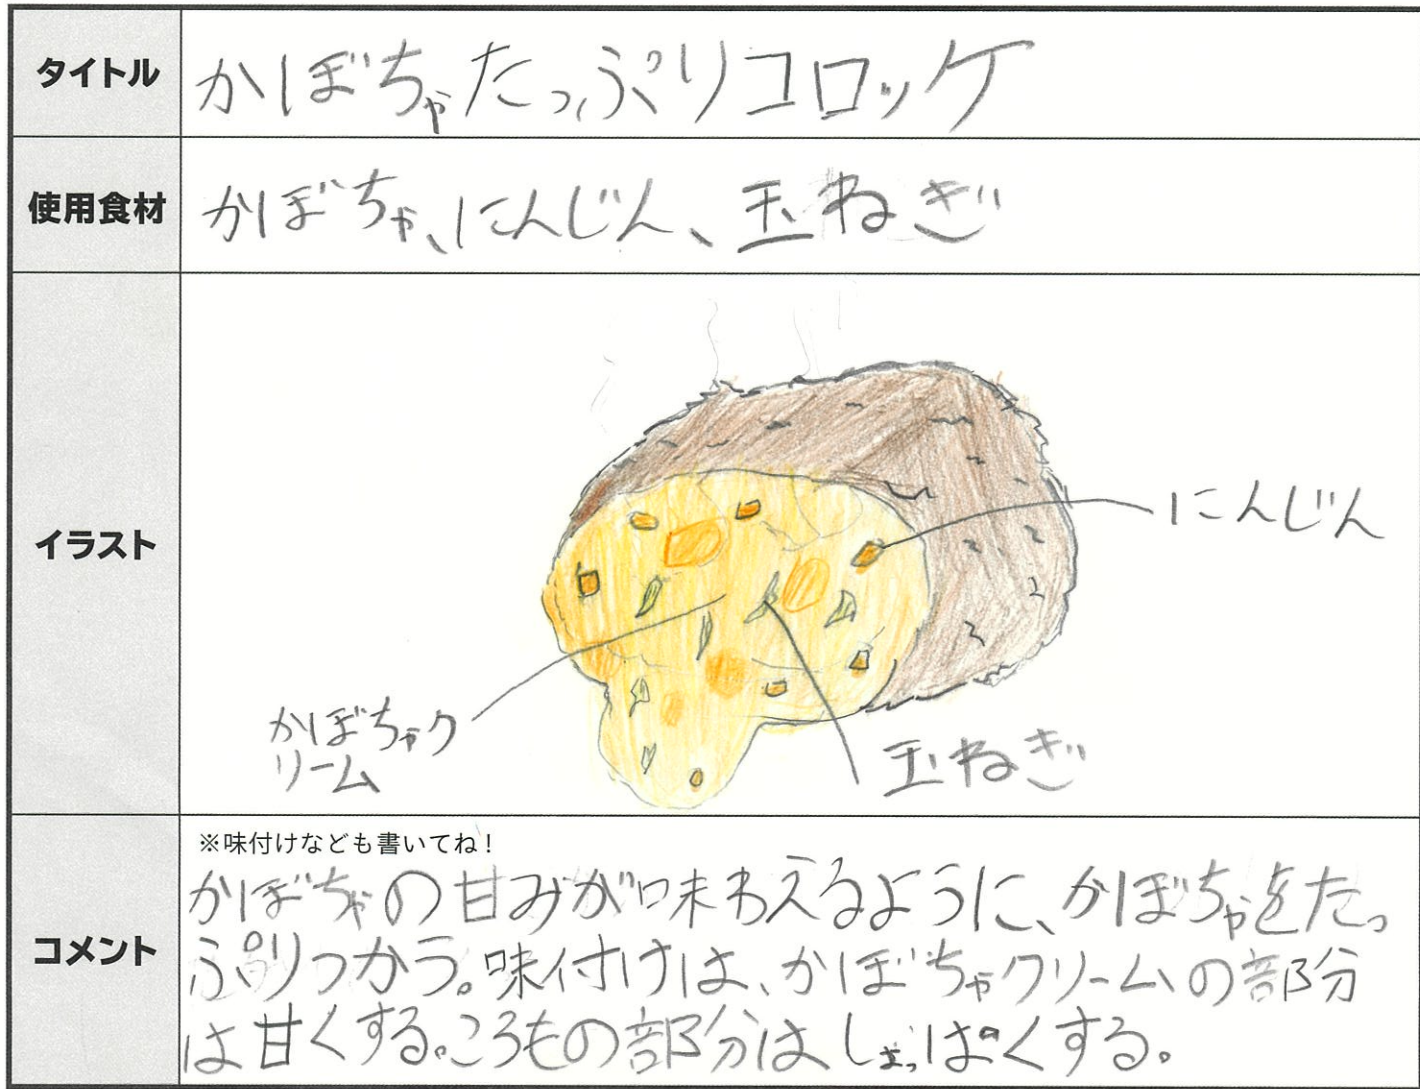 タイトル
かぼちゃたっぷりコロッケ
使用食材
かぼちゃ、にんじん、玉ねぎ
イラスト
にんじん
かぼちゃク
リーム
玉ねぎ
コメント
※味付けなども書いてね!
かぼちゃの甘みが味わえるように、かぼちゃをたっ
ぷりつかう。味付けは、かぼちゃクリームの部分
は甘くする。ころもの部分はしょっぱくする。